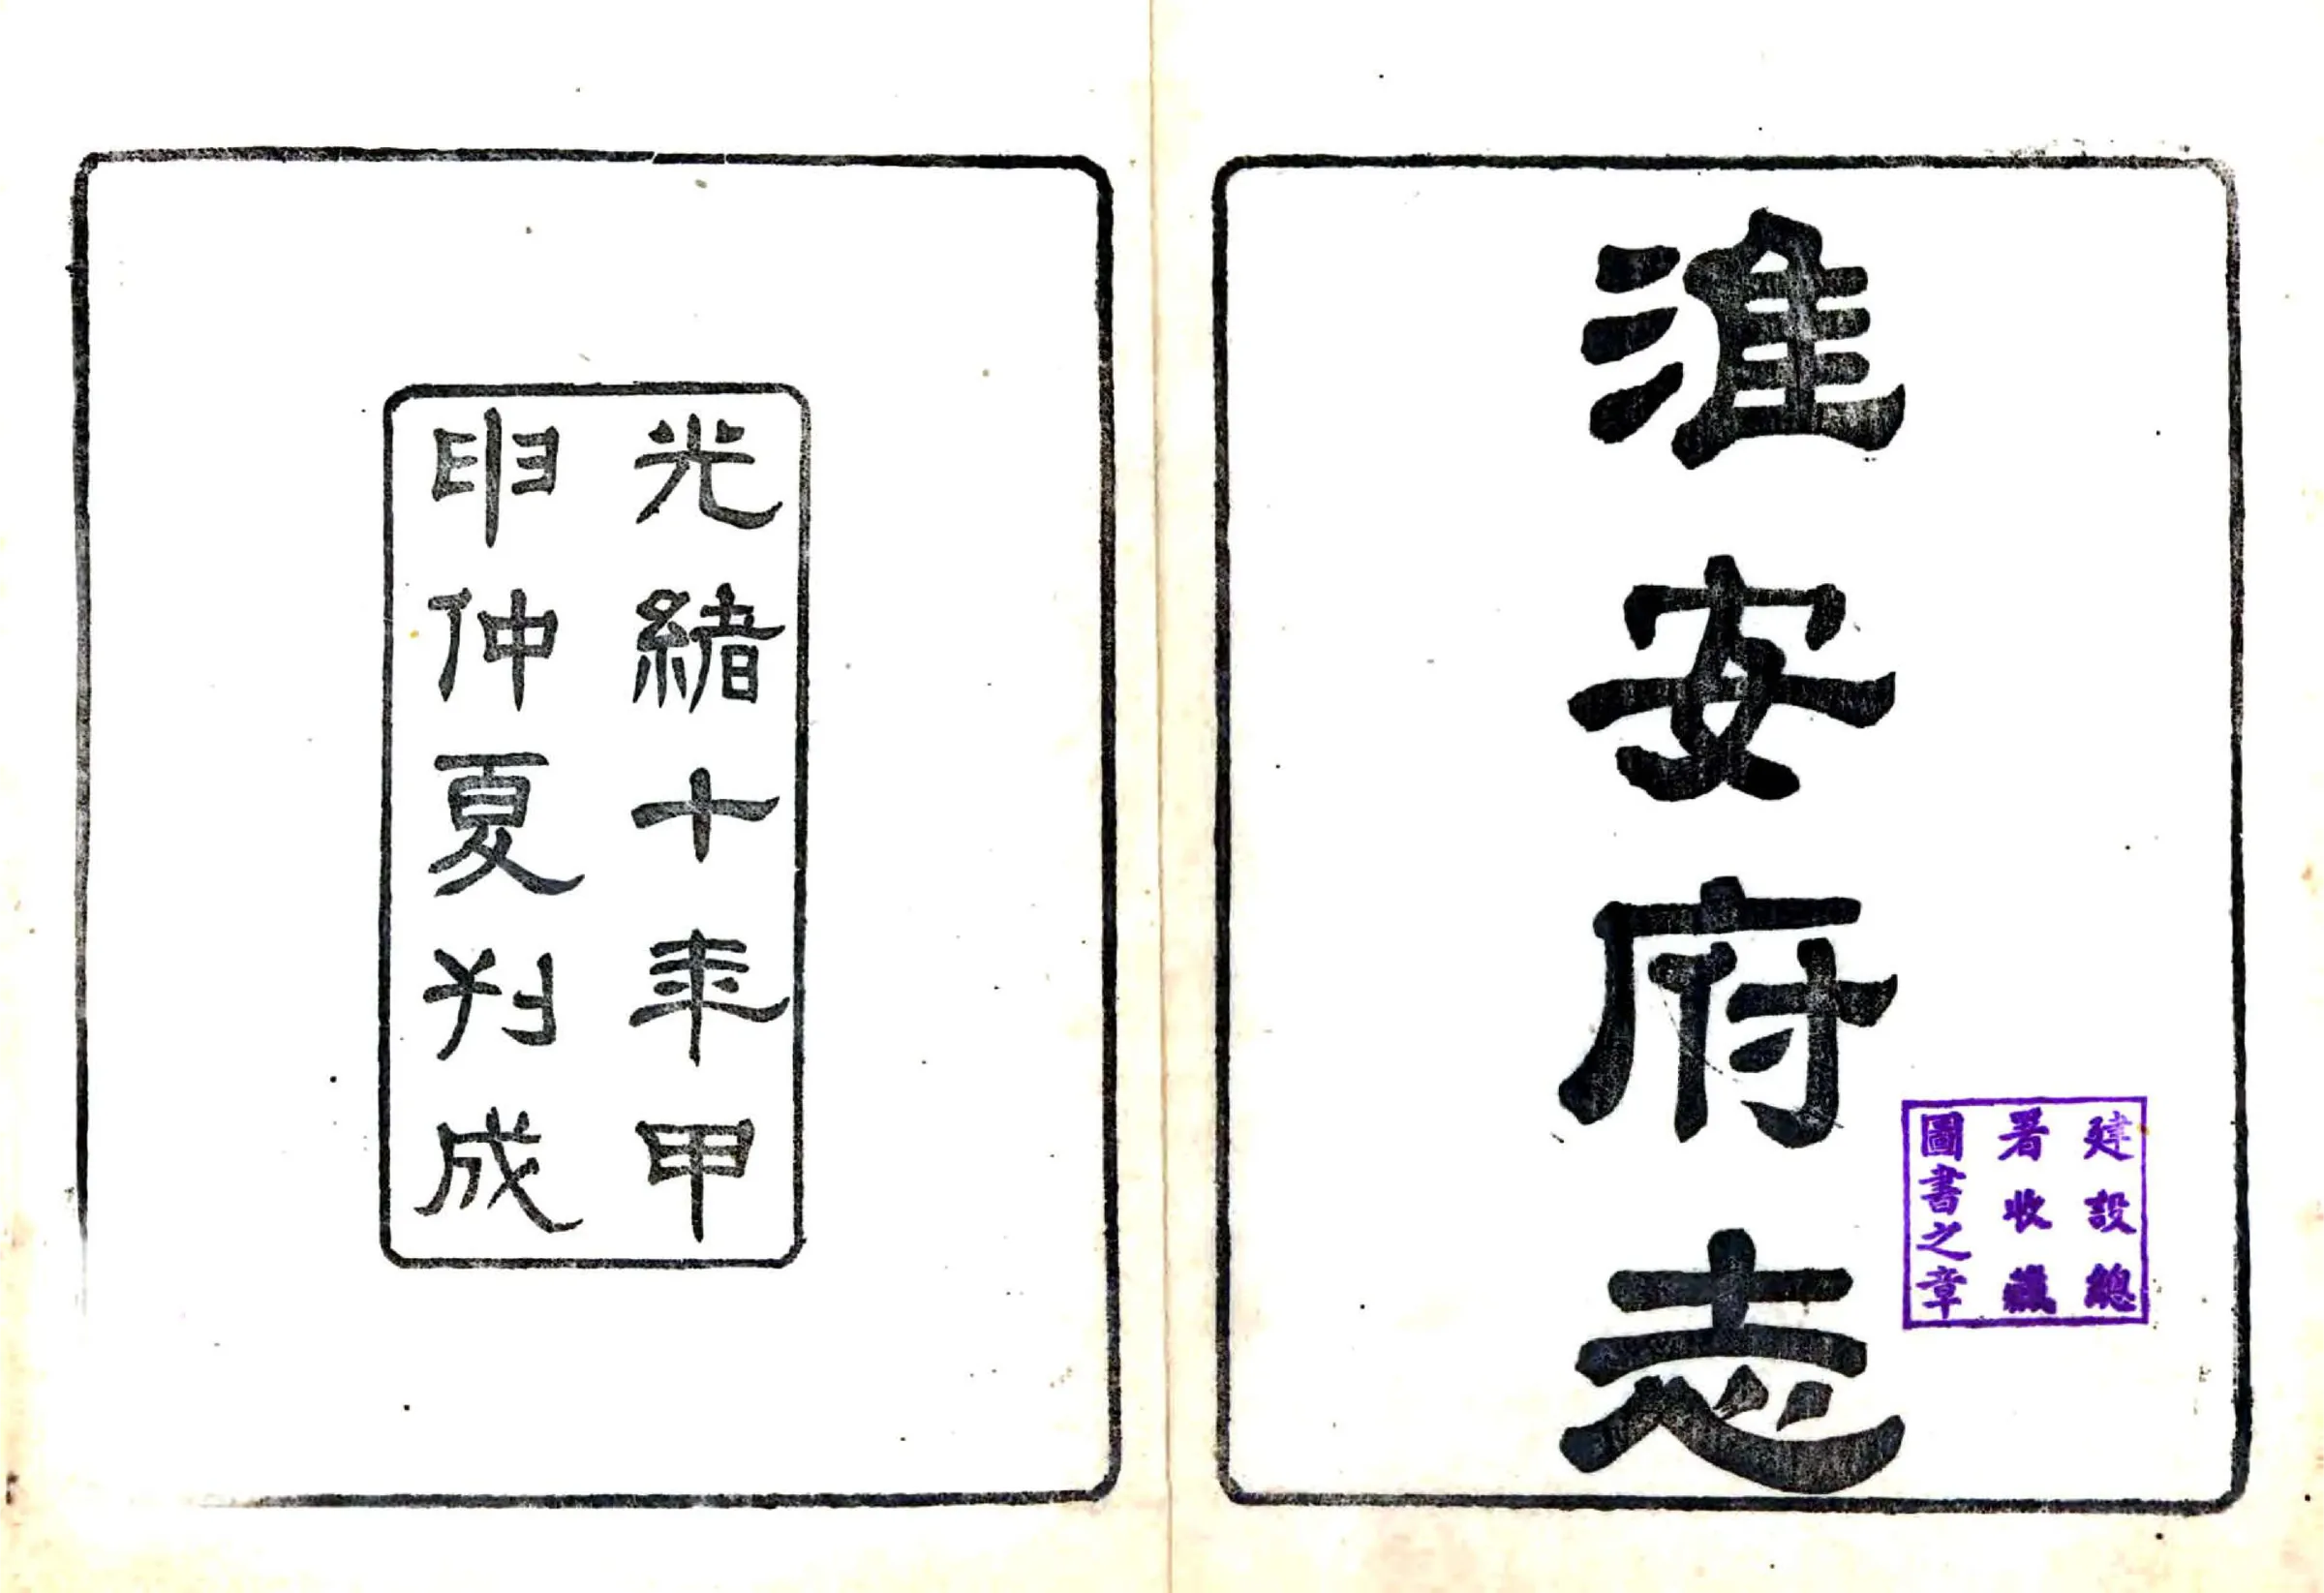 淮安府志
建設總
署收藏
圖書之章
光緒十年甲
申仲夏刋成